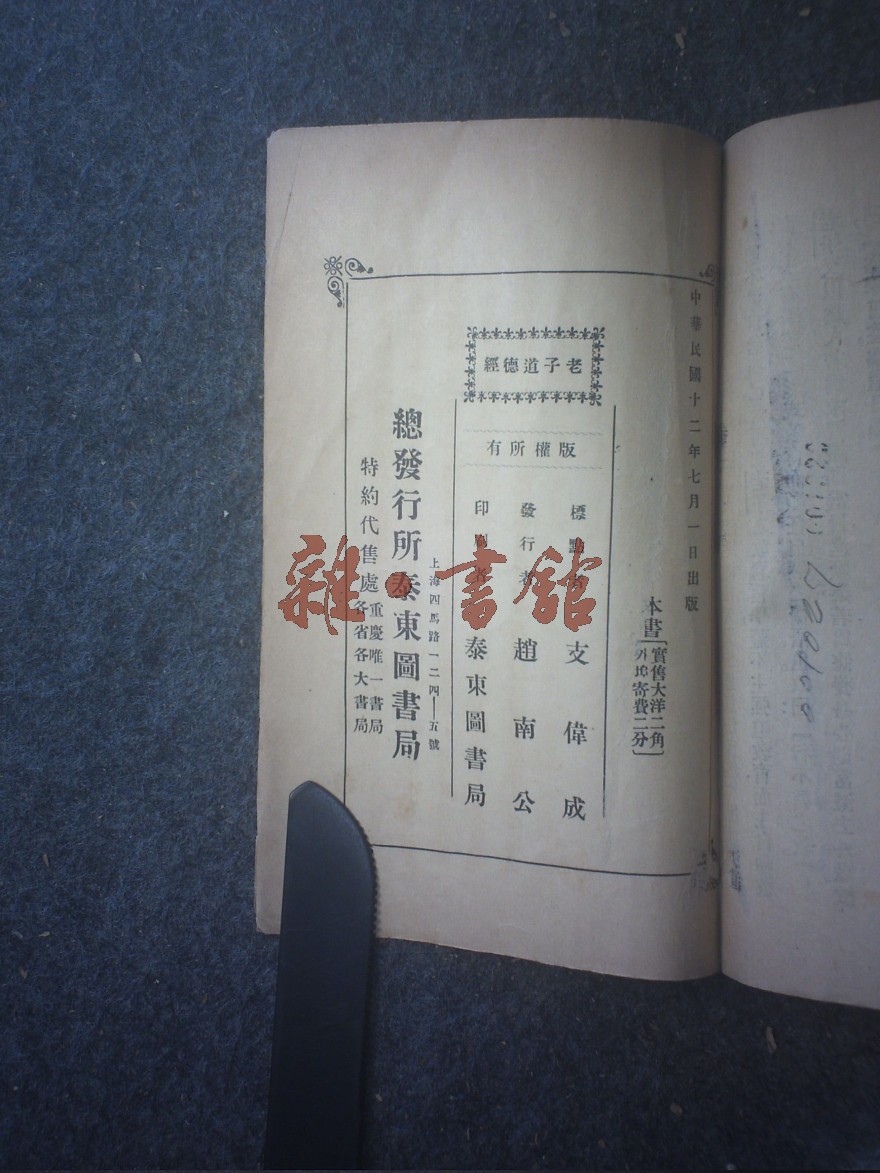 中華民國十二年七月一日出版
本書
實售大洋二角
外埠寄費二分
老子道德經
版權所有
標點者 支偉成
發行者 趙南公
印刷者 泰東圖書局
上海四馬路一二四—五號
總發行所泰東圖書局
特約代售處
重慶唯一書局
各省各大書局
雜·書館